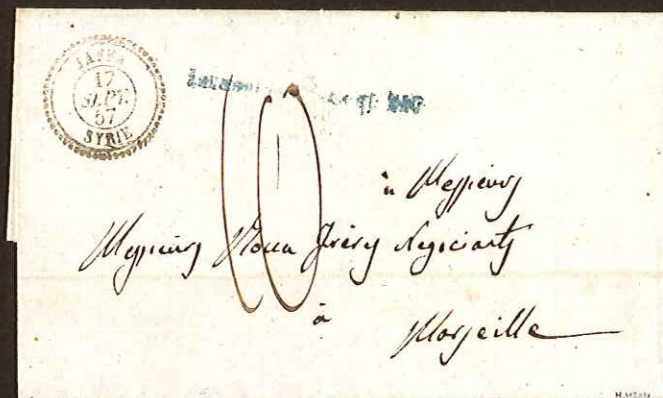 JAFFA
17
SEPT.
57
SYRIE
10
à Messieurs
Messieurs Frères Negociants
à
Marseille